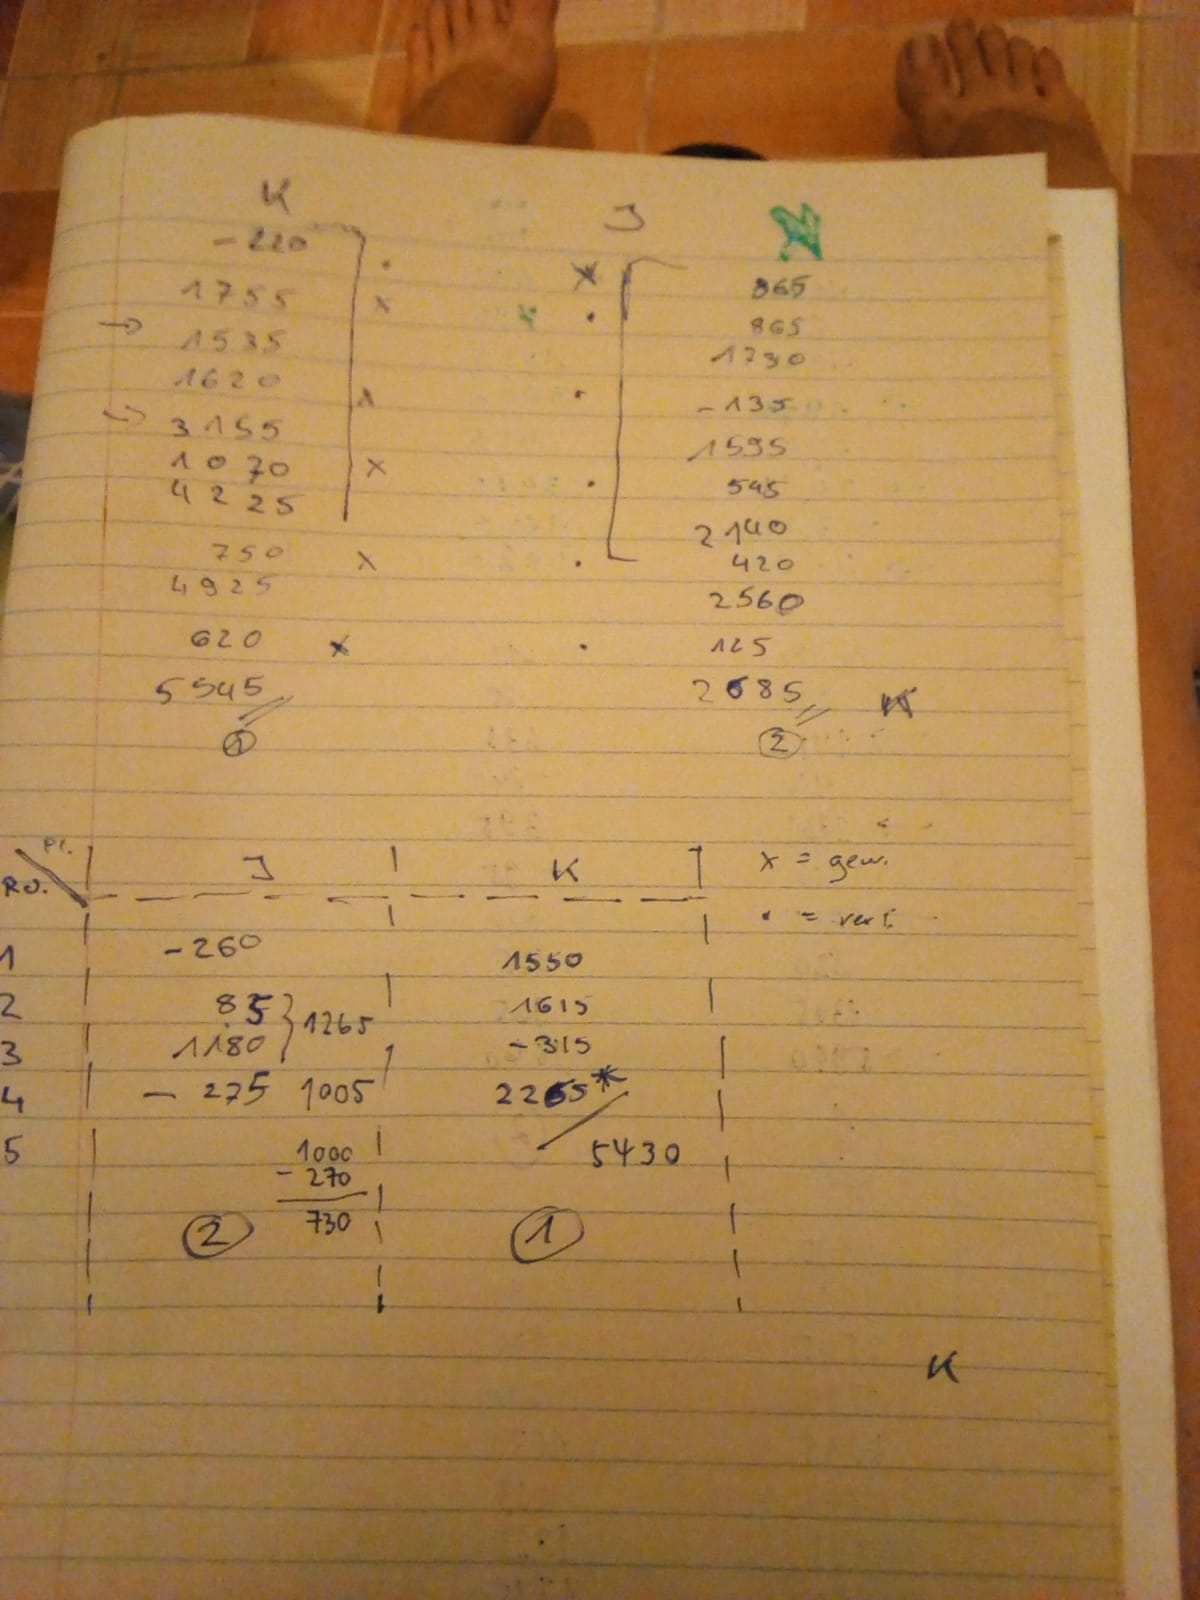 K J
-220
865
1755 x
865
→ 1535
1730
1620 x
-135
→ 3155
1595
1070 x
545
4225
2140
750 x
420
4925
2560
620 x
125
5545
2685 K
1 2
Pl. J K x = gew.
RD. • = verl.
1 -260 1550
2 85 } 1265 1615
3 1180 -315
4 - 275 1005 2265*
5 1000 5430
- 270
730
2 1
K